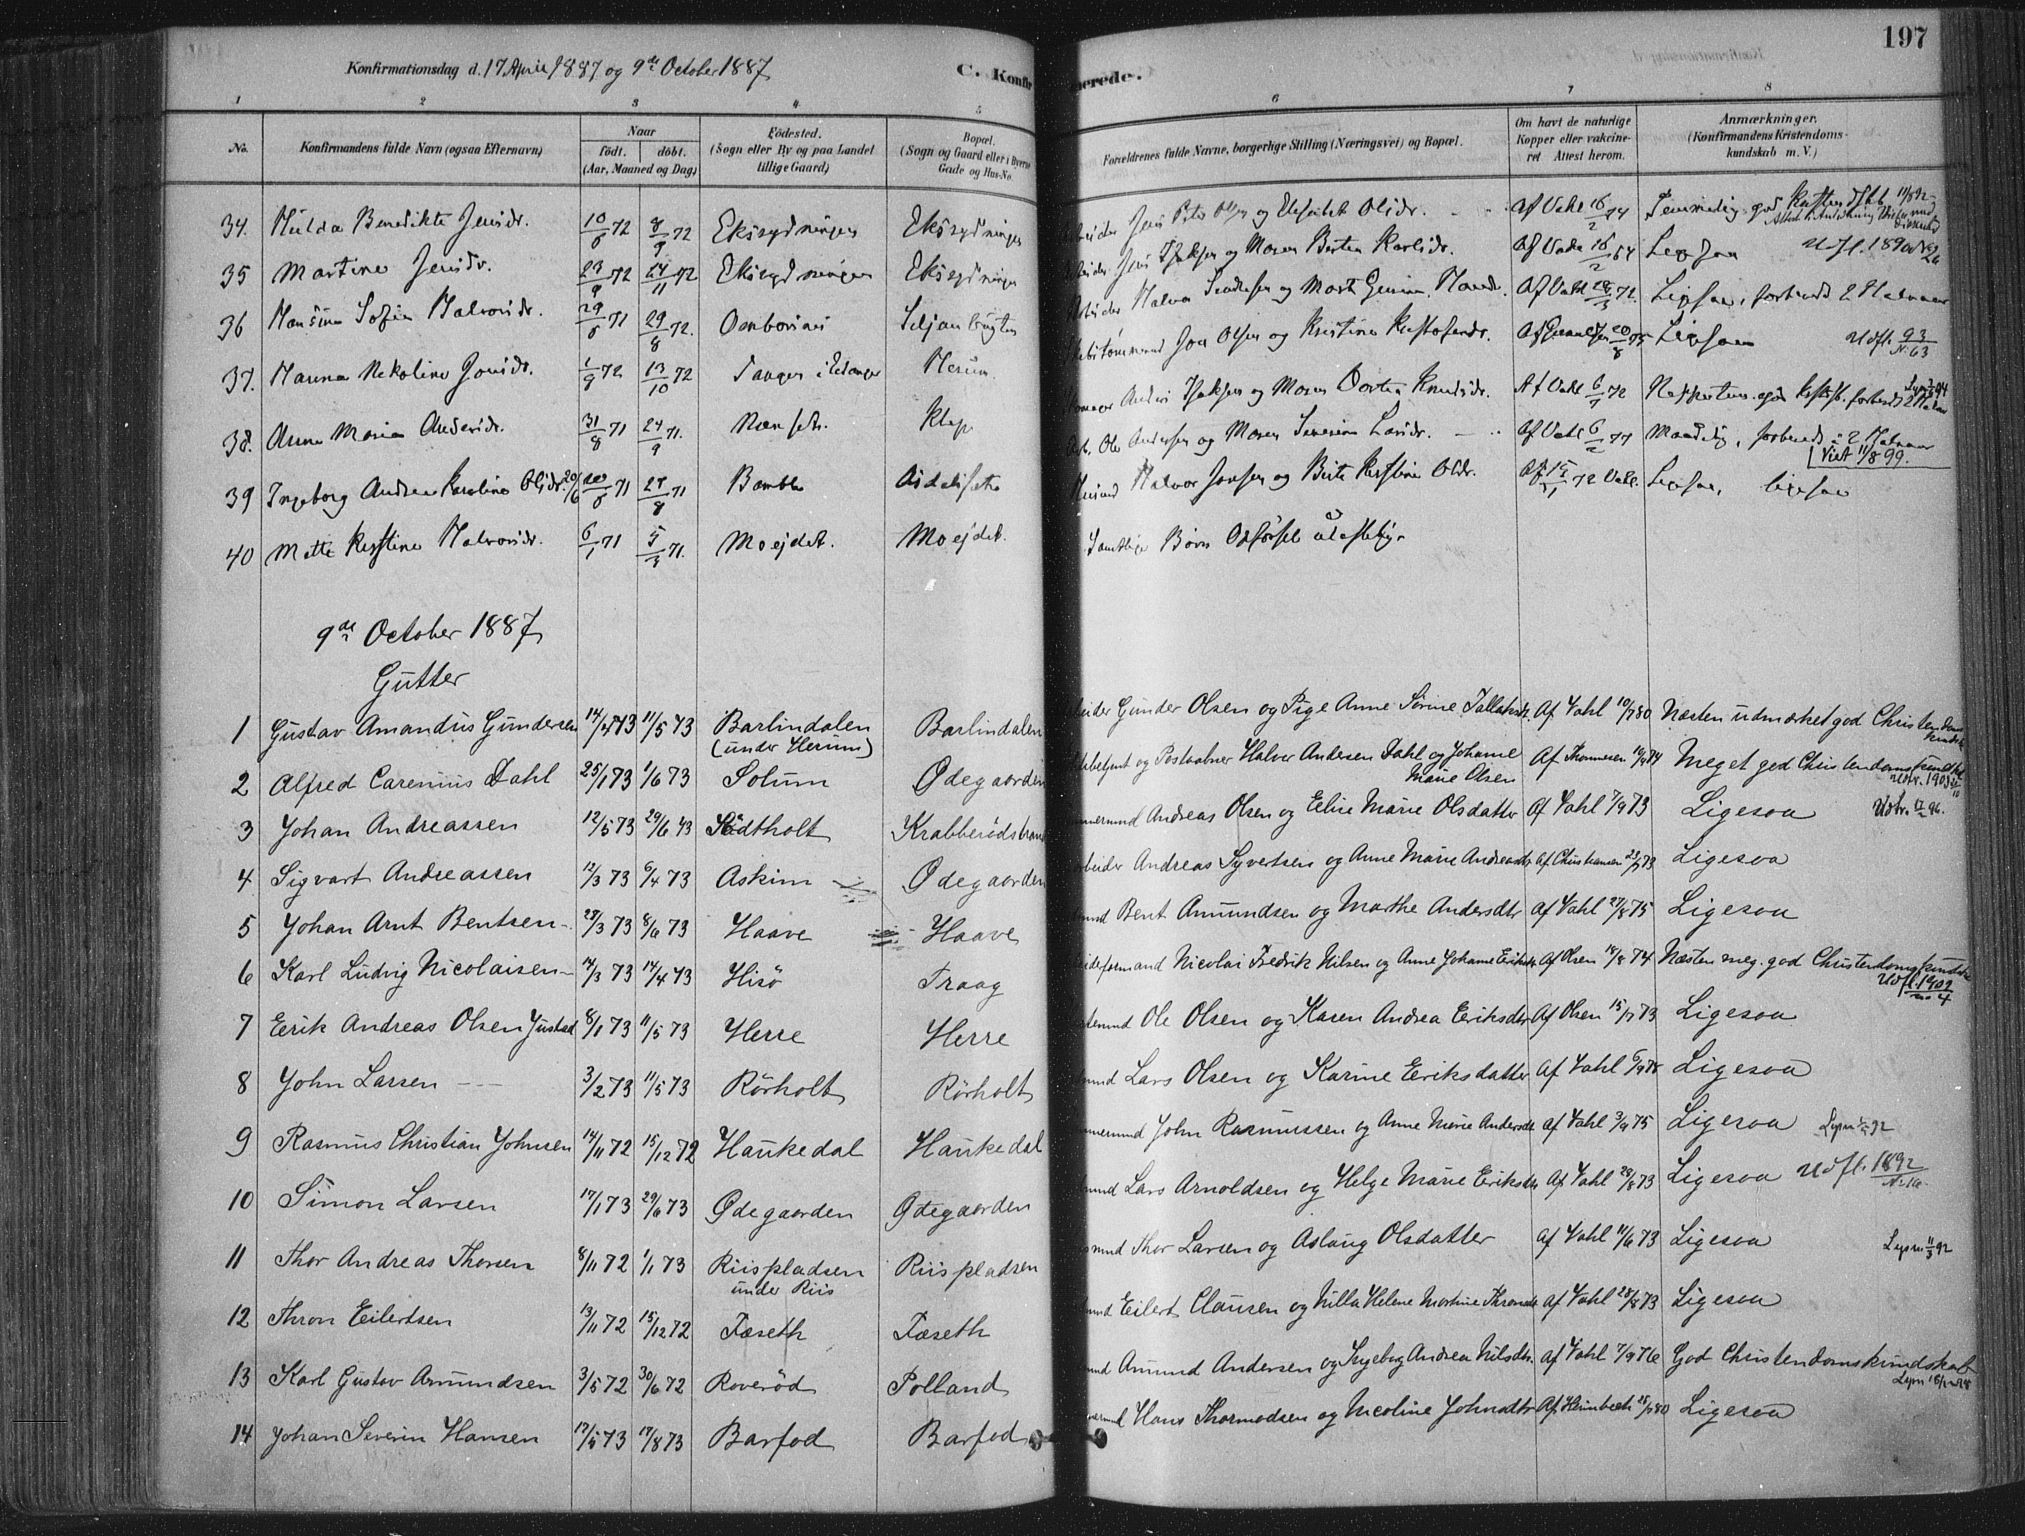 197
Konfirmationsdag d. 17 April 1887 og 9de October 1887
C. Konfirmerede.
1 2 3 4 5 6 7 8
No. Konfirmandens fulde Navn (ogsaa Efternavn) Naar født. døbt. (Aar, Maaned og Dag) Fødested. (Sogn eller By og paa Landet tillige Gaard) Bopæl. (Sogn og Gaard eller i Byerne Gade og Hus-No. Forældrenes fulde Navne, borgerlige Stilling (Næringsvei) og Bopæl. Om havt de naturlige Kopper eller vakcineret Attest herom. Anmærkninger. (Konfirmandens Kristendomskundskab m. V.)
34. Hulda Benedikte Jensdr. 10/6 72 8/9 72 Eksrydningen Eksrydningen Jens Peter Olsen og Elisabet Olsdr. Af Vahl 16/2 74 Temmelig god 11/8 92
35 Martine Jensdr. 29/9 72 24/11 72 Eksrydningen Eksrydningen Jens Isaksen og Maren Berthe Karlsdr. Af Vahl 16/2 Ligesaa Udfl. 1890 No 26
36 Hansine Sofie Halvorsdr. 29/6 71 29/8 72. Halvor og Maren Af Vahl 72. Ligesaa, forbereds 2 Halvaar
37. Hanna Nikoline Jonsdr. 1/9 72 13/10 72 Tangen i Eidanger Herum Jon Olsen og Kristine Kristofersdr. 20/8 75 Ligesaa Udfl. 93/N. 63
38. Anna Maria Andersdr. 31/8 71 24/9 71. Klep Anders Isaksen og Maren Dorthea Knudsdr. Af Vahl 6/7 72 god
39 Ingeborg Andrea Karoline Olsdr. 20/6 71 27/8 71 Bamble Ole Andersen og Maren Severine Larsdr. Af Vahl 6/2 77 Maadelig, forbereds 2 Halvaar Viet 11/8 99.
40 Mette Kirstine Halvorsdr. 6/1 71 5/3 71. Moejdet. Moejdet. Halvor Jonsen og Berte Kirstine Olsdr. Af 15/1 72 Vahl. Ligesaa, ligesaa
Samtlige Børns Opførsel
9de October 1887
Gutter
1 Gustav Amandus Gundersen 14/4 73 11/5 73 Barlindalen (under Herum) Barlindalen Gunder Olsen og Pige Anne Sørine Tallaksdr. Af Vahl 10/7 80 Næsten udmærket god Christendoms kundsk.
2 Alfred Carenius Dahl 25/1 73 1/6 73 Solum Ødegaarden og Postaabner Halvor Andersen Dahl og Johanne Marie Olsen Af Thommesen 19/9 74 Meget god Christendomskundsk. Udtr. 1903
3 Johan Andreassen 12/5 73 29/6 73 Stødtholt Krabberødstrand Andreas Olsen og Eline Marie Olsdatter Af Vahl 7/9 73 Ligesaa Udtr. 96.
4 Sigvart Andreassen 12/3 73 6/4 73 Askim Ødegaarden Andreas Syvertsen og Anne Marie Andreasdtr. Af Christiansen 23/7 73 Ligesaa
5 Johan Arnt Bentsen 28/3 73 8/6 73 Haave Haave Bent Amundsen og Marthe Andersdtr Af Vahl 27/8 75 Ligesaa
6 Karl Ludvig Nicolaisen 14/3 73 14/4 73 Hisö Traag Nicolai Fredrik Nilsen og Anne Johanne Eriksdtr Af Olsen 18/8 74 Næsten meg. god Christendomskundsk. Udfl. 1902 No 4
7 Eerik Andreas Olsen Justad 8/1 73 11/5 73 Herre Herre Ole Olsen og Karen Andrea Eeriksdtr Af Olsen 15/7 73 Ligesaa
8 John Larsen 3/2 73 11/5 73 Rörholt Rörholt Lars Olsen og Karine Eeriksdatter Af Vahl Ligesaa
9 Rasmus Christian Johnsen 14/11 72 15/12 72 Haukedal Haukedal John Rasmussen og Anne Marie Andersdtr Af Vahl 3/9 75 Ligesaa Lysn 92
10 Simon Larsen 17/1 73 29/6 73 Ødegaarden Ødegaarden Lars Arnoldsen og Helge Marie Eeriksdtr Af Vahl 28/8 73 Ligesaa Udfl. 1892
11 Thor Andreas Thorsen 8/11 72 1/1 73 Riispladsen under Riis Riispladsen Thor Larsen og Aslaug Olsdatter Af Vahl 11/6 73 Ligesaa Lysn 11/3 92
12 Thron Eilertsen 13/11 72 15/12 72 Fæseth Fæseth Eilert Clausen og Milla Helene Martine Thronsdtr Af Vahl 28/8 73 Ligesaa
13 Karl Gustav Amundsen 3/5 72 30/6 72 Roverød Polland Amund Andersen og Ingeborg Andrea Nilsdtr. Af Vahl 7/9 76 God Christendomskundskab
14 Johan Severin Hansen 17/5 73 17/8 73 Barfod Barfod Hans Thormodsen og Nicoline Johnsdtr Af Heimbeck 25/7 80 Ligesaa